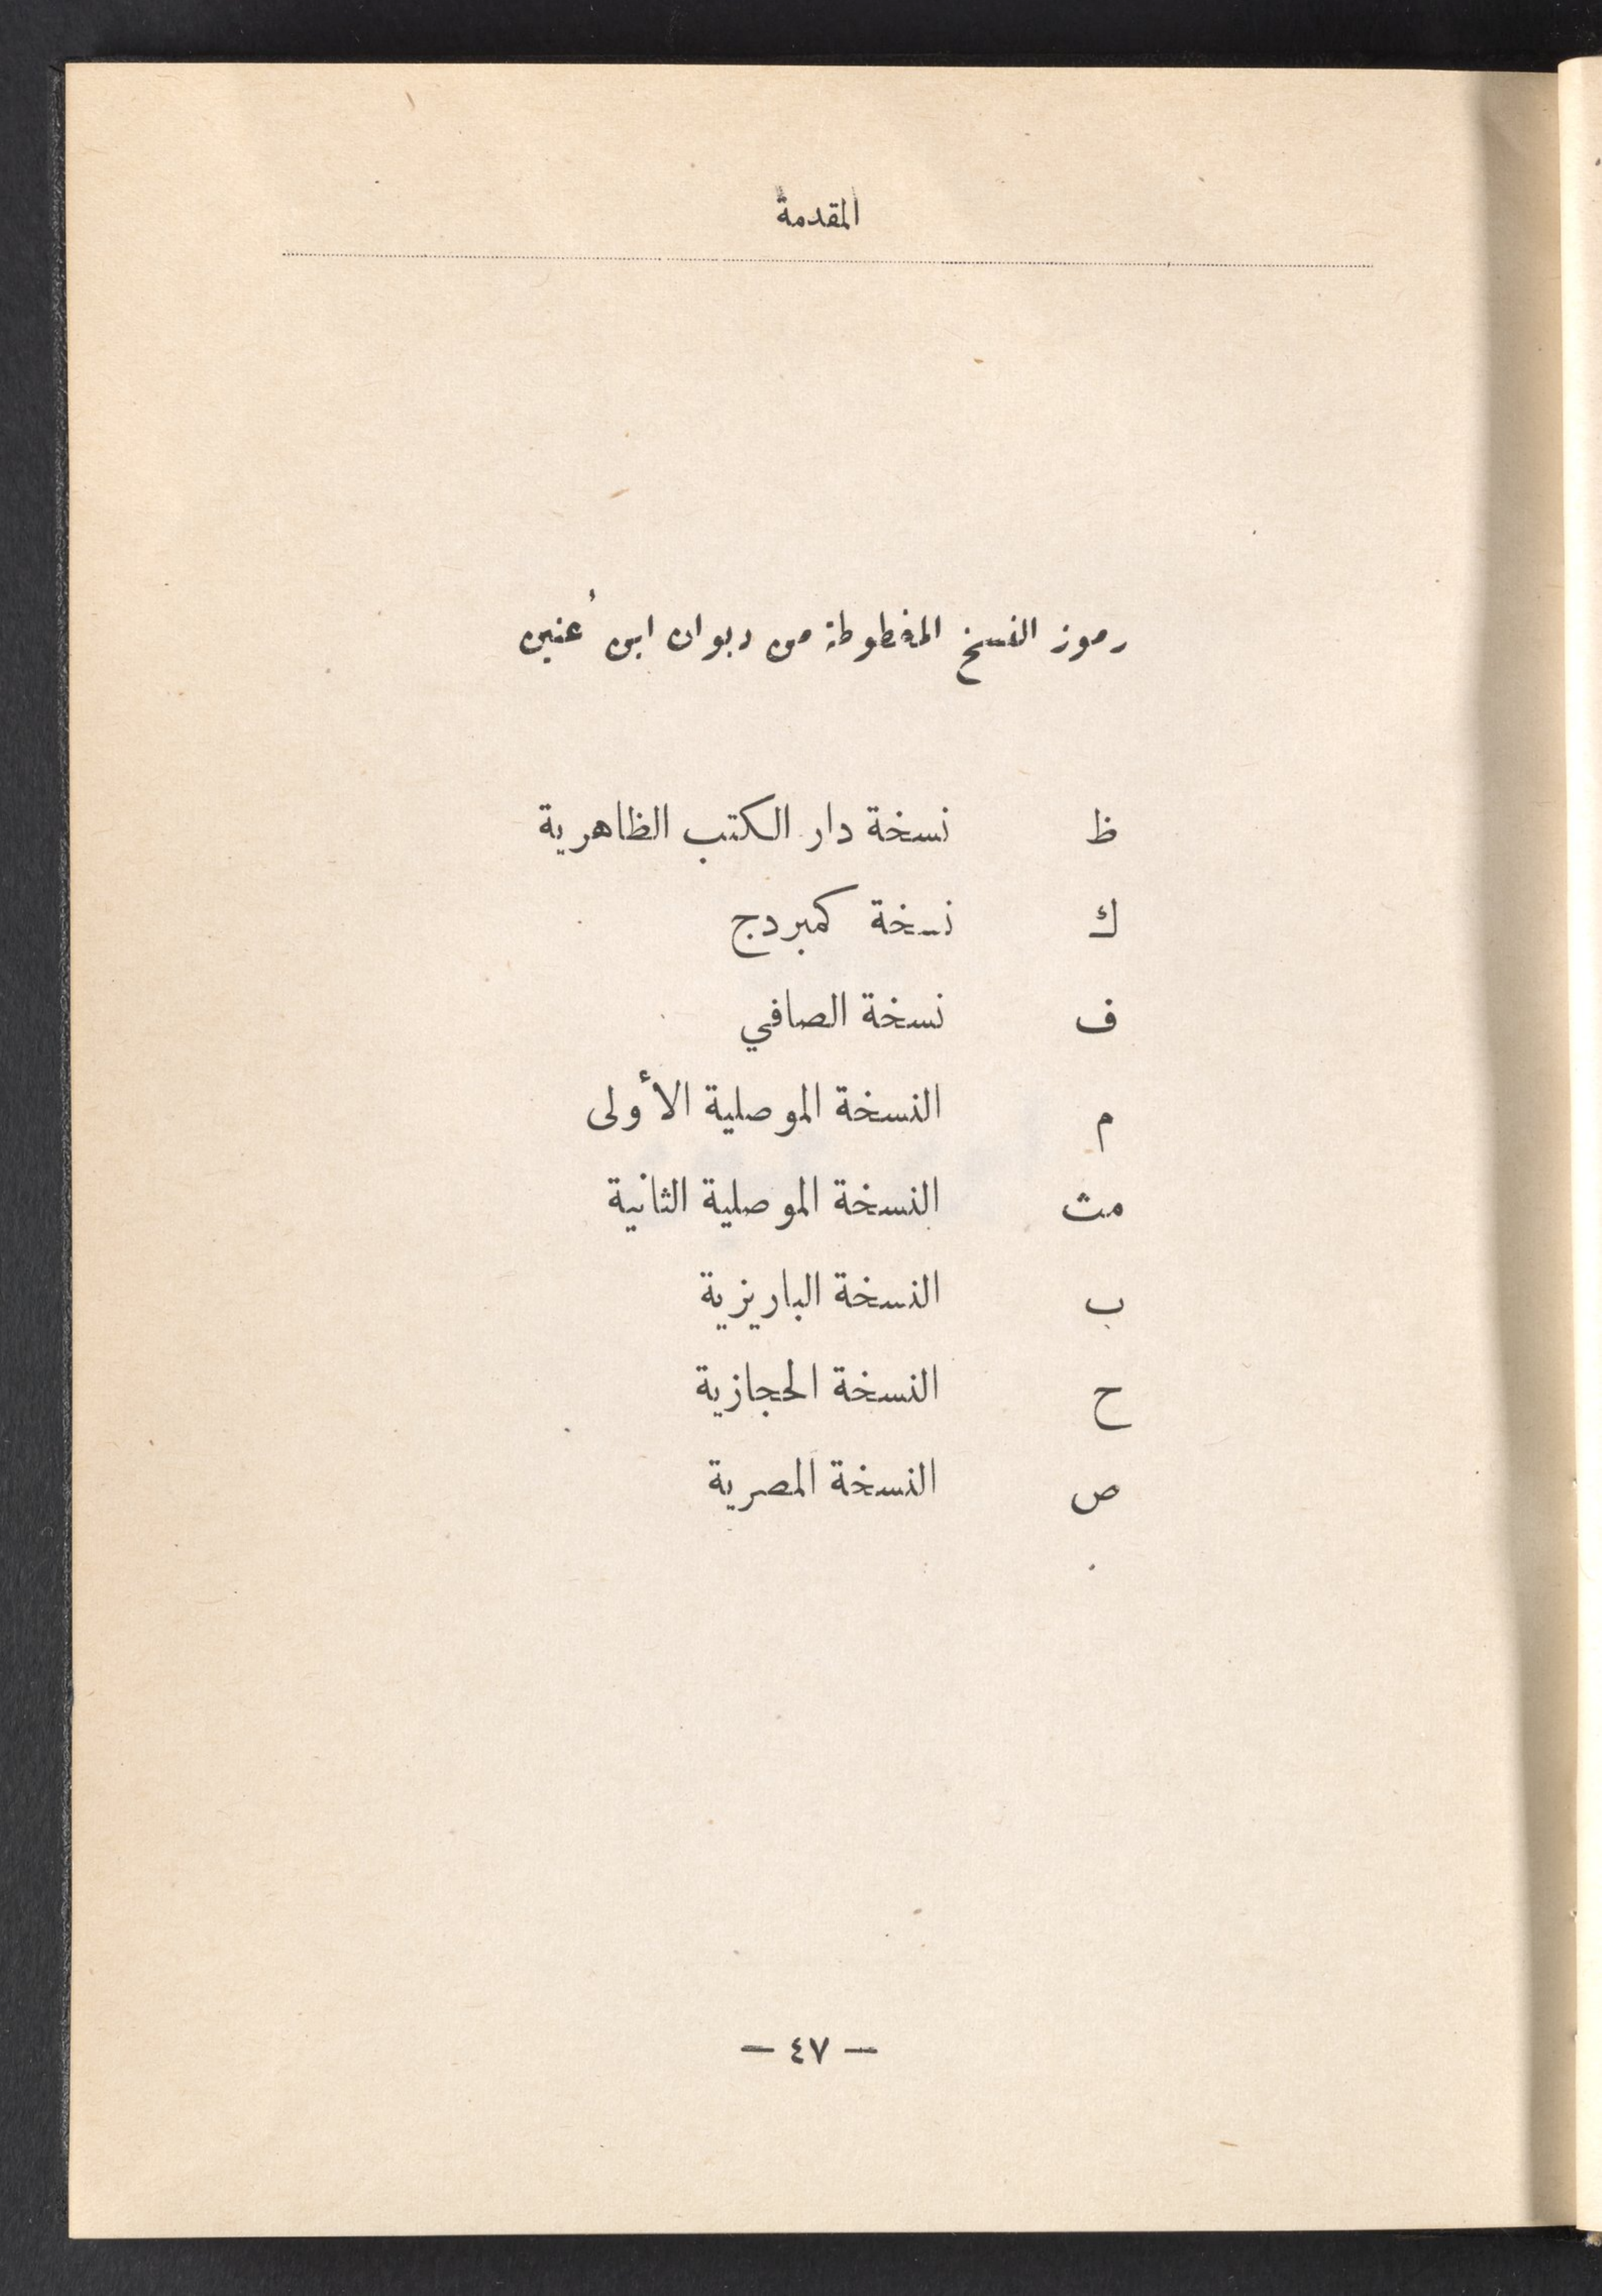 المقدمة
رموز النسخ المخطوطة من ديوان ابن عُنين
ظ نسخة دار الكتب الظاهرية
ك نسخة كمبردج
ف نسخة الصافي
م النسخة الموصلية الأولى
مث النسخة الموصلية الثانية
ب النسخة الباريزية
ح النسخة الحجازية
ص النسخة المصرية
— ٤٧ —